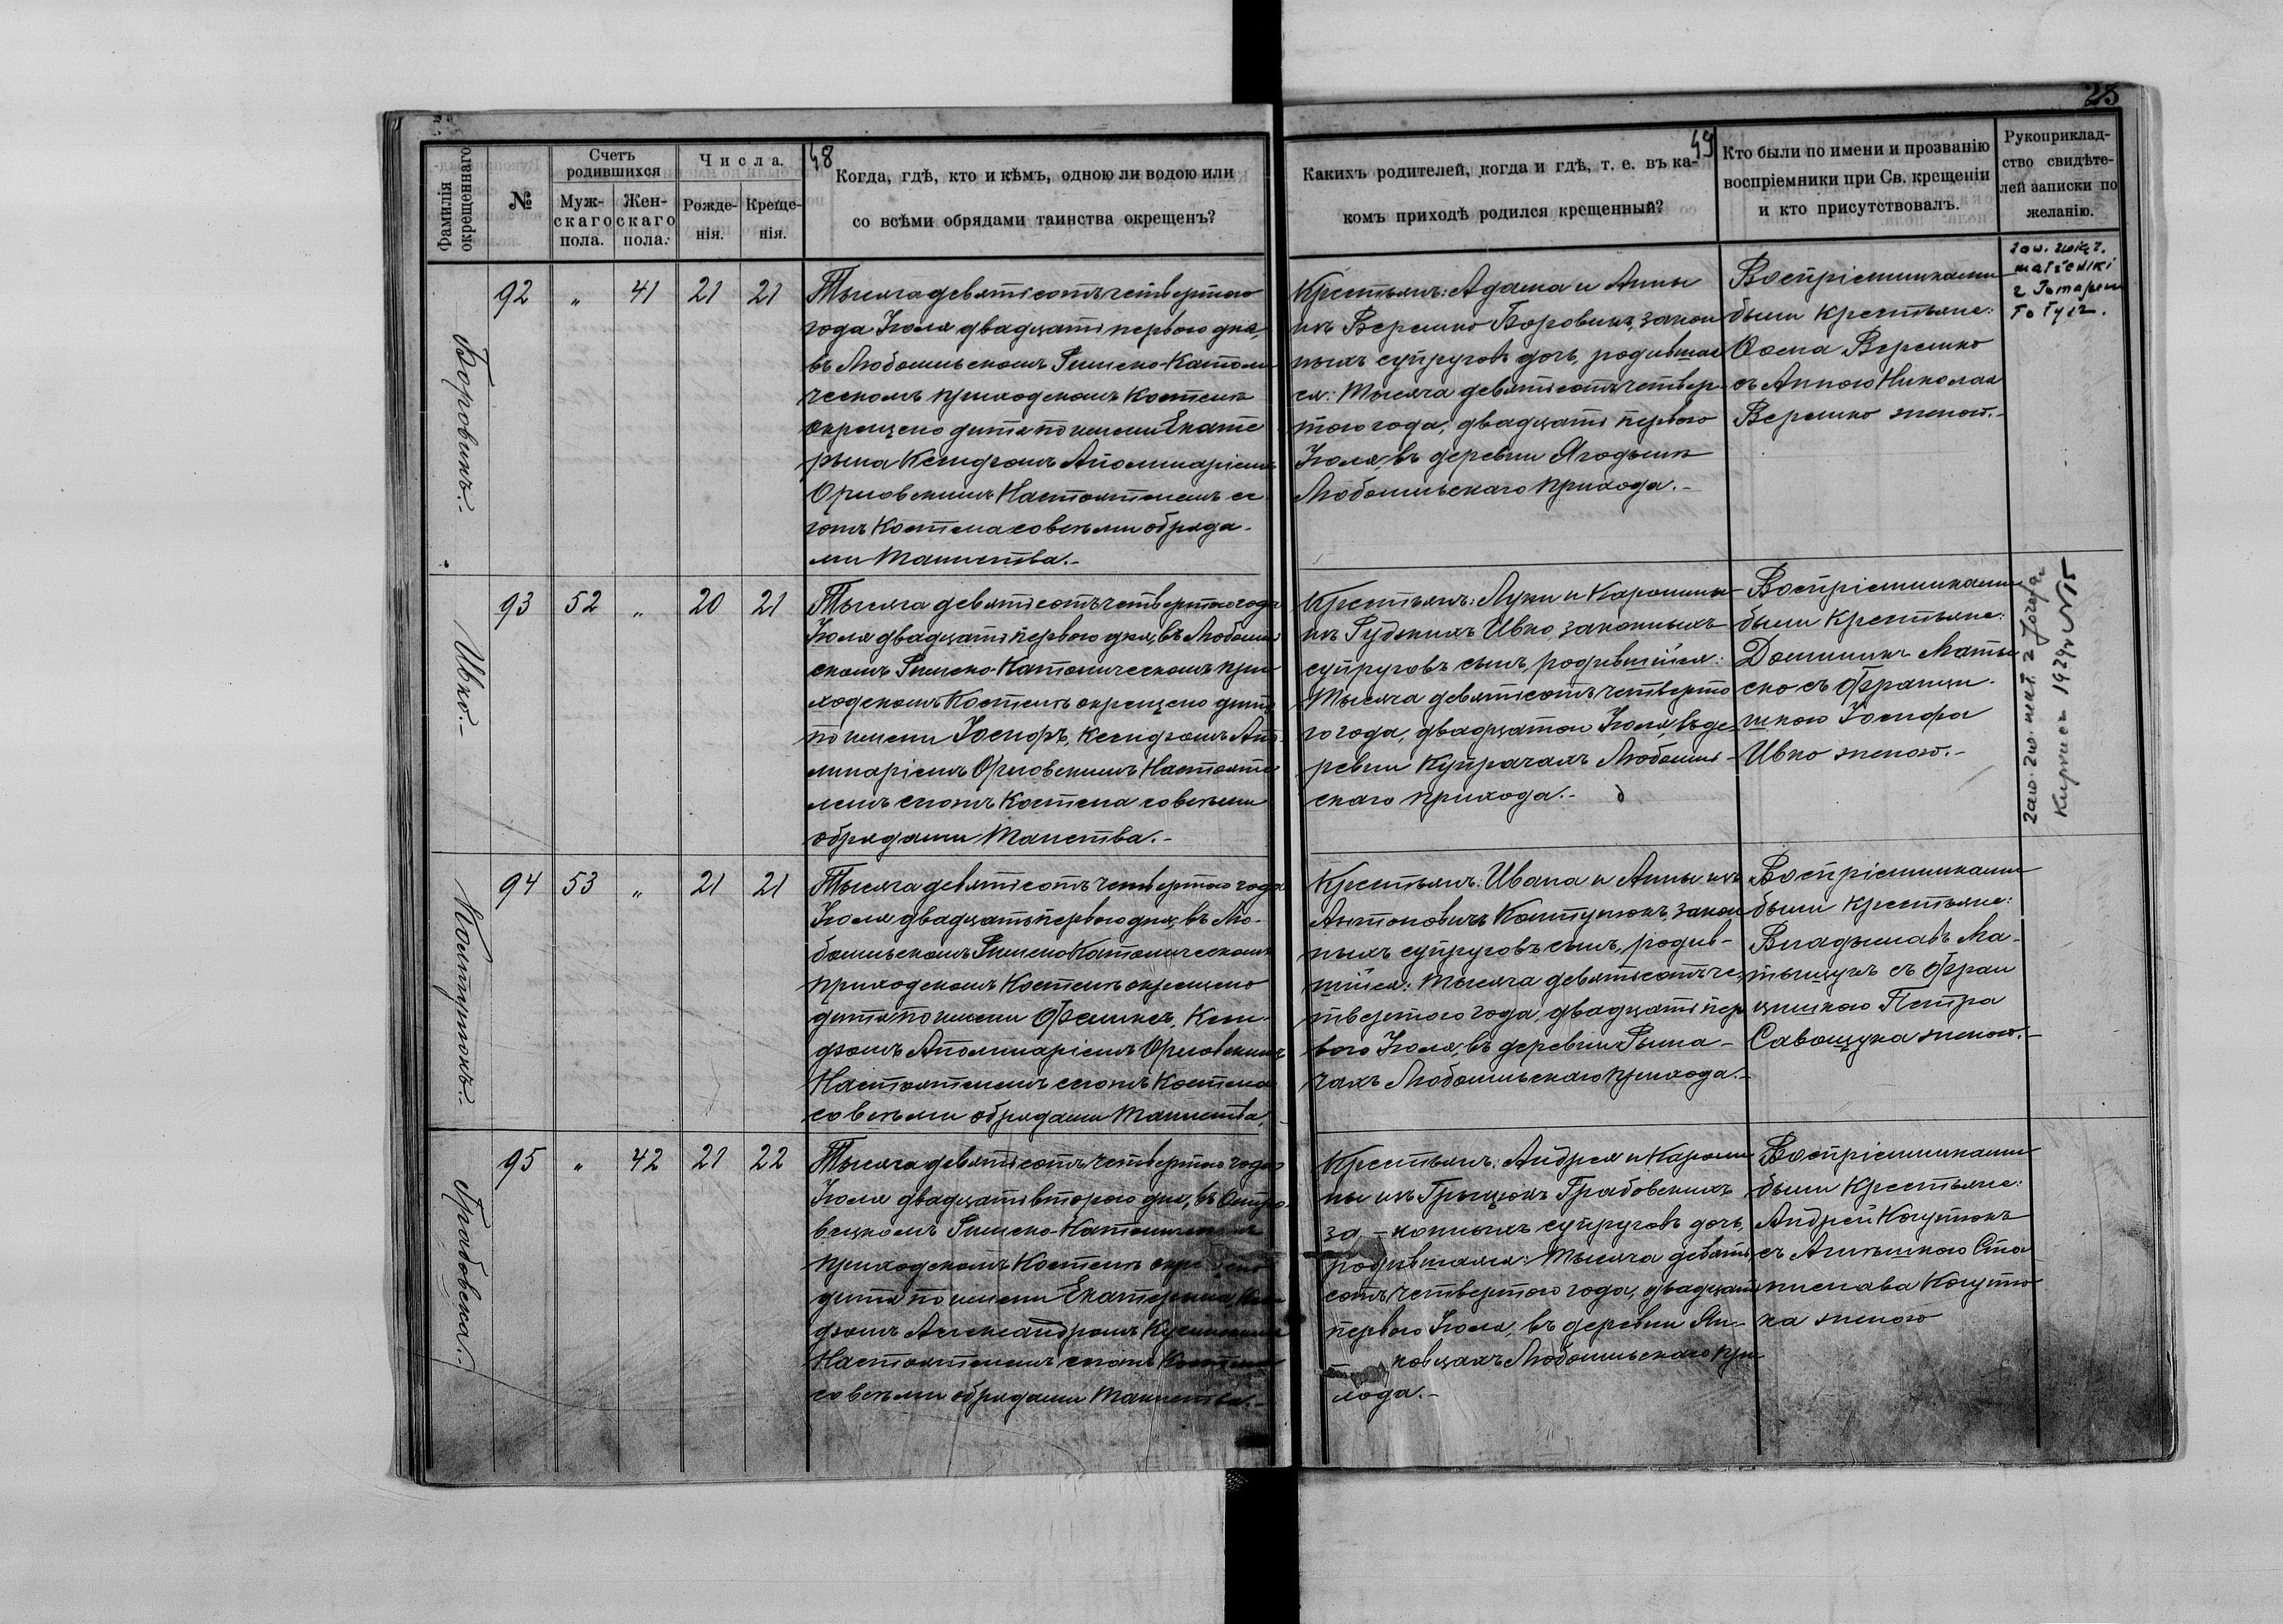 23
48
49
Фамилія окрещеннаго
№
Счетъ родившихся
Муж-скаго пола.
Жен-скаго пола.
Числа.
Рожде-нія.
Креще-нія.
Когда, гдѣ, кто и кѣмъ, одною ли водою или
со всѣми обрядами таинства окрещенъ?
Какихъ родителей, когда и гдѣ, т. е. въ ка-
комъ приходѣ родился крещенный?
Кто были по имени и прозванію
воспріемники при Св. крещеніи
и кто присутствовалъ.
Рукоприклад-
ство свидѣте-
лей записки по
желанію.
Боровикъ.
92 „ 41 21 21
Тысяча девятьсотъ четвертого
года Іюля двадцать первого дня,
въ Любомльскомъ Римско-Католи
ческомъ приходскомъ Костелѣ
окрещено дитя по имени Екате
рына Ксендзомъ Аполинаріемъ
Орловскимъ Настоятелемъ се
готъ Костела со всѣми обряда-
ми Таинства.-
Крестьянъ: Адама и Анны
изъ Веремко Боровикъ, закон
ныхъ супруговъ дочь, родившая
ся: Тысяча девятьсотъ четвер-
того года, двадцать первого
Іюля, въ деревни Ягодынѣ
Любомльскаго прихода.-
Воспріемниками
были Крестьяне:
Ѳома Веремко
съ Анною Николая
Веремко женою.-
zaw. związ.
małżeński
Ивко.-
93 52 „ 20 21
Тысяча девятьсотъ четвертого года
Іюля двадцать первого дня, въ Любомль
скомъ Римско-Католическомъ при
ходскомъ Костелѣ окрещено дитя
по имени Іосифъ, Ксендзомъ Апо-
линаріемъ Орловскимъ Настояте
лемъ сготъ Костела со всѣми
обрядами Таинства.-
Крестьянъ: Луки и Каролины
изъ Гудзкихъ Ивко, законныхъ
супруговъ сынъ, родившійся:
Тысяча девятьсотъ четверто
го года, двадцатого Іюля, въ де-
ревни Купрачахъ Любомль-
скаго прихода.-
Воспріемниками
были Крестьяне:
Доминикъ Маты
ско съ Францы-
шкою Іосифа
Ивко женою.-
zaw. zw. małż. z Józefą
1929 r N 15
Колтунюкъ.-
94 53 „ 21 21
Тысяча девятьсотъ четвертого года
Іюля двадцать первого дня, въ Лю-
бомльскомъ Римско-Католическомъ
приходскомъ Костелѣ окрещено
дитя по имени Феликсъ, Ксен-
дзомъ Аполинаріемъ Орловскимъ
Настоятелемъ сготъ Костела
со всѣми обрядами Таинства,
Крестьянъ: Ивана и Анны изъ
Антоновичъ Колтунюкъ, закон
ныхъ супруговъ сынъ, родив-
шійся: Тысяча девятьсотъ че-
твертого года, двадцать пер
вого Іюля, въ деревни Рыма-
чахъ Любомльскаго прихода.-
Воспріемниками
были Крестьяне:
Владыславъ Ма-
тыщукъ съ Фран
цишкою Петра
Савощука женою.-
Грабовска.-
95 „ 42 21 22
Тысяча девятьсотъ четвертого года
Іюля двадцать второго дня, въ Остро-
вецкомъ Римско-Католическомъ
приходскомъ Костелѣ окрещено
дитя по имени Екатерына, Ксен
дзомъ Александромъ
Настоятелемъ сготъ Костела
со всѣми обрядами Таинства.-
Крестьянъ: Андрея и Кароли
ны изъ Грыцюкъ Грабовскихъ
за-конныхъ супруговъ дочь,
родившаяся: Тысяча девять
сотъ четвертого года, двадцать
первого Іюля, въ деревни Ян-
ковцахъ Любомльскаго при
хода.-
Воспріемниками
были Крестьяне:
Андрей Коцюмокъ
съ Агнѣшкою Ста
нислава Коцюмо
ка женою